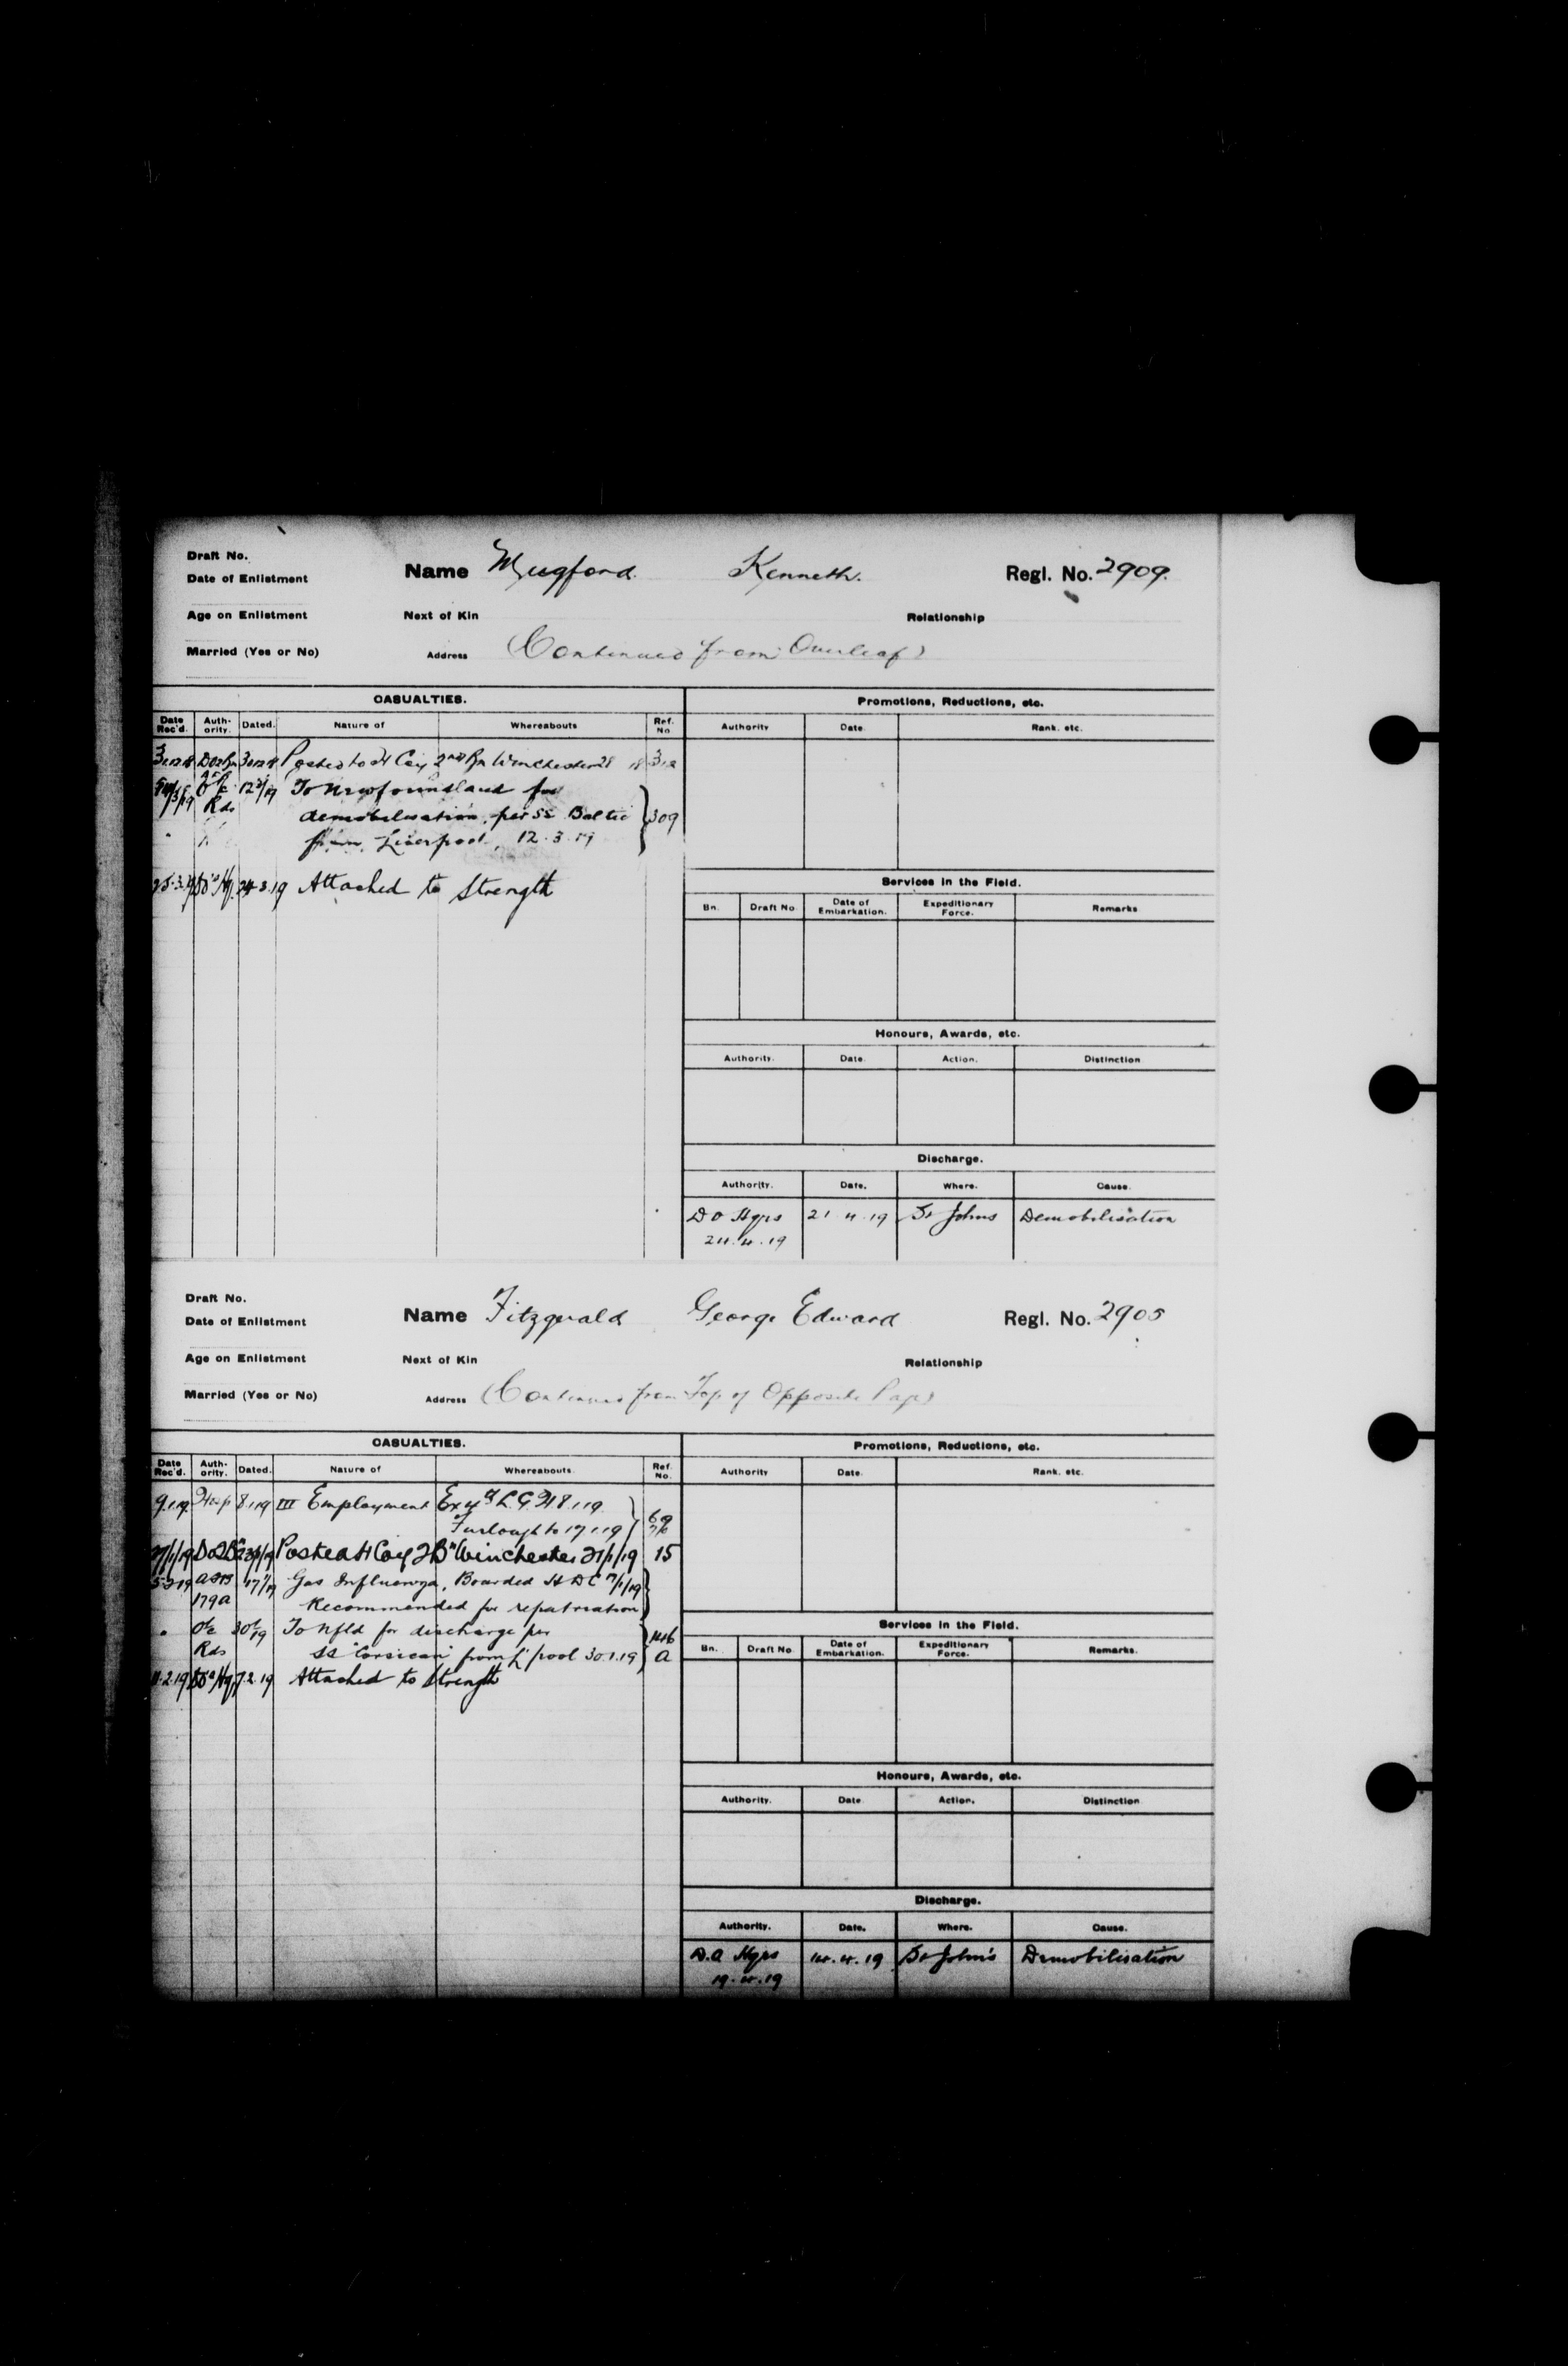 Draft No.
Date of Enlistment
Name Mugford Kenneth. Regl. No. 2909.
Age on Enlistment Next of Kin Relationship
Married (Yes or No) Address (Continued from Overleaf)
CASUALTIES. Promotions, Reductions, etc.
Date Rec'd. Auth-ority. Dated. Nature of Whereabouts Ref. No. Authority Date. Rank. etc.
Posted to H Coy 2nd Bn Winchester 28
To Newfoundland for
Rds demobilisation, per SS Baltic 309
from Liverpool, 12.3.19
25.3.19 24.3.19 Attached to Strength
Services in the Field.
Bn. Draft No. Date of Embarkation. Expeditionary Force. Remarks
Honours, Awards, etc.
Authority. Date. Action. Distinction
Discharge.
Authority. Date. Where. Cause.
D O Hqrs 21.4.19 St Johns Demobilisation
24.4.19
Draft No.
Date of Enlistment
Name Fitzgerald George Edward Regl. No. 2905
Age on Enlistment Next of Kin Relationship
Married (Yes or No) Address (Continued from Top of Opposite Page)
CASUALTIES. Promotions, Reductions, etc.
Date Rec'd. Auth-ority. Dated. Nature of Whereabouts. Ref. No. Authority Date. Rank. etc.
9.1.19 Hosp 8.1.19 III Employment 8.1.19
Furlough to 17.1.19
Posted H Coy 2 Bn Winchester 21/1/19 15
5.2.19 17/1/19 Gas Influenza, Boarded
179a Recommended for repatriation
To Nfld for discharge per
Rds SS "Corsican" from L'pool 30.1.19 A
11.2.19 7.2.19 Attached to Strength
Services in the Field.
Bn. Draft No. Date of Embarkation. Expeditionary Force. Remarks.
Honours, Awards, etc.
Authority. Date. Action. Distinction
Discharge.
Authority. Date. Where. Cause.
D.O Hqrs 14.4.19 St John's Demobilisation
19.4.19